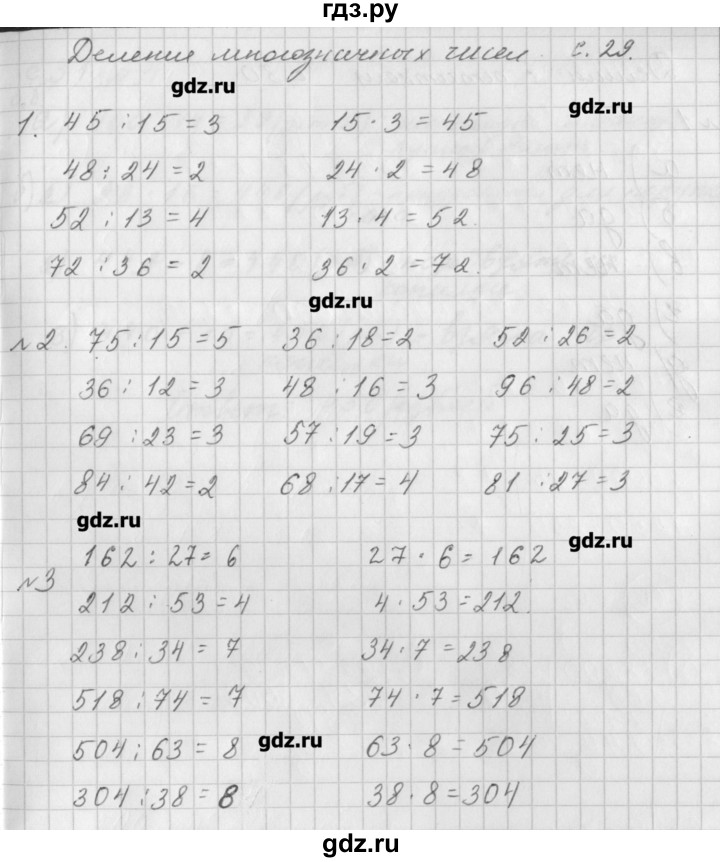 гдз.ру
Деление многозначных чисел. с. 29.
gdz.ru
1. 45 : 15 = 3 15 · 3 = 45
48 : 24 = 2 24 · 2 = 48
52 : 13 = 4 13 · 4 = 52.
72 : 36 = 2 36 · 2 = 72.
gdz.ru
№2. 75 : 15 = 5 36 : 18 = 2 52 : 26 = 2
36 : 12 = 3 48 : 16 = 3 96 : 48 = 2
69 : 23 = 3 57 : 19 = 3 75 : 25 = 3
84 : 42 = 2 68 : 17 = 4 81 : 27 = 3
gdz.ru
gdz.ru
№3 162 : 27 = 6 27 · 6 = 162
212 : 53 = 4 4 · 53 = 212.
238 : 34 = 7 34 · 7 = 238
518 : 74 = 7 74 · 7 = 518
504 : 63 = 8 gdz.ru 63 · 8 = 504
304 : 38 = 8 38 · 8 = 304
gdz.ru